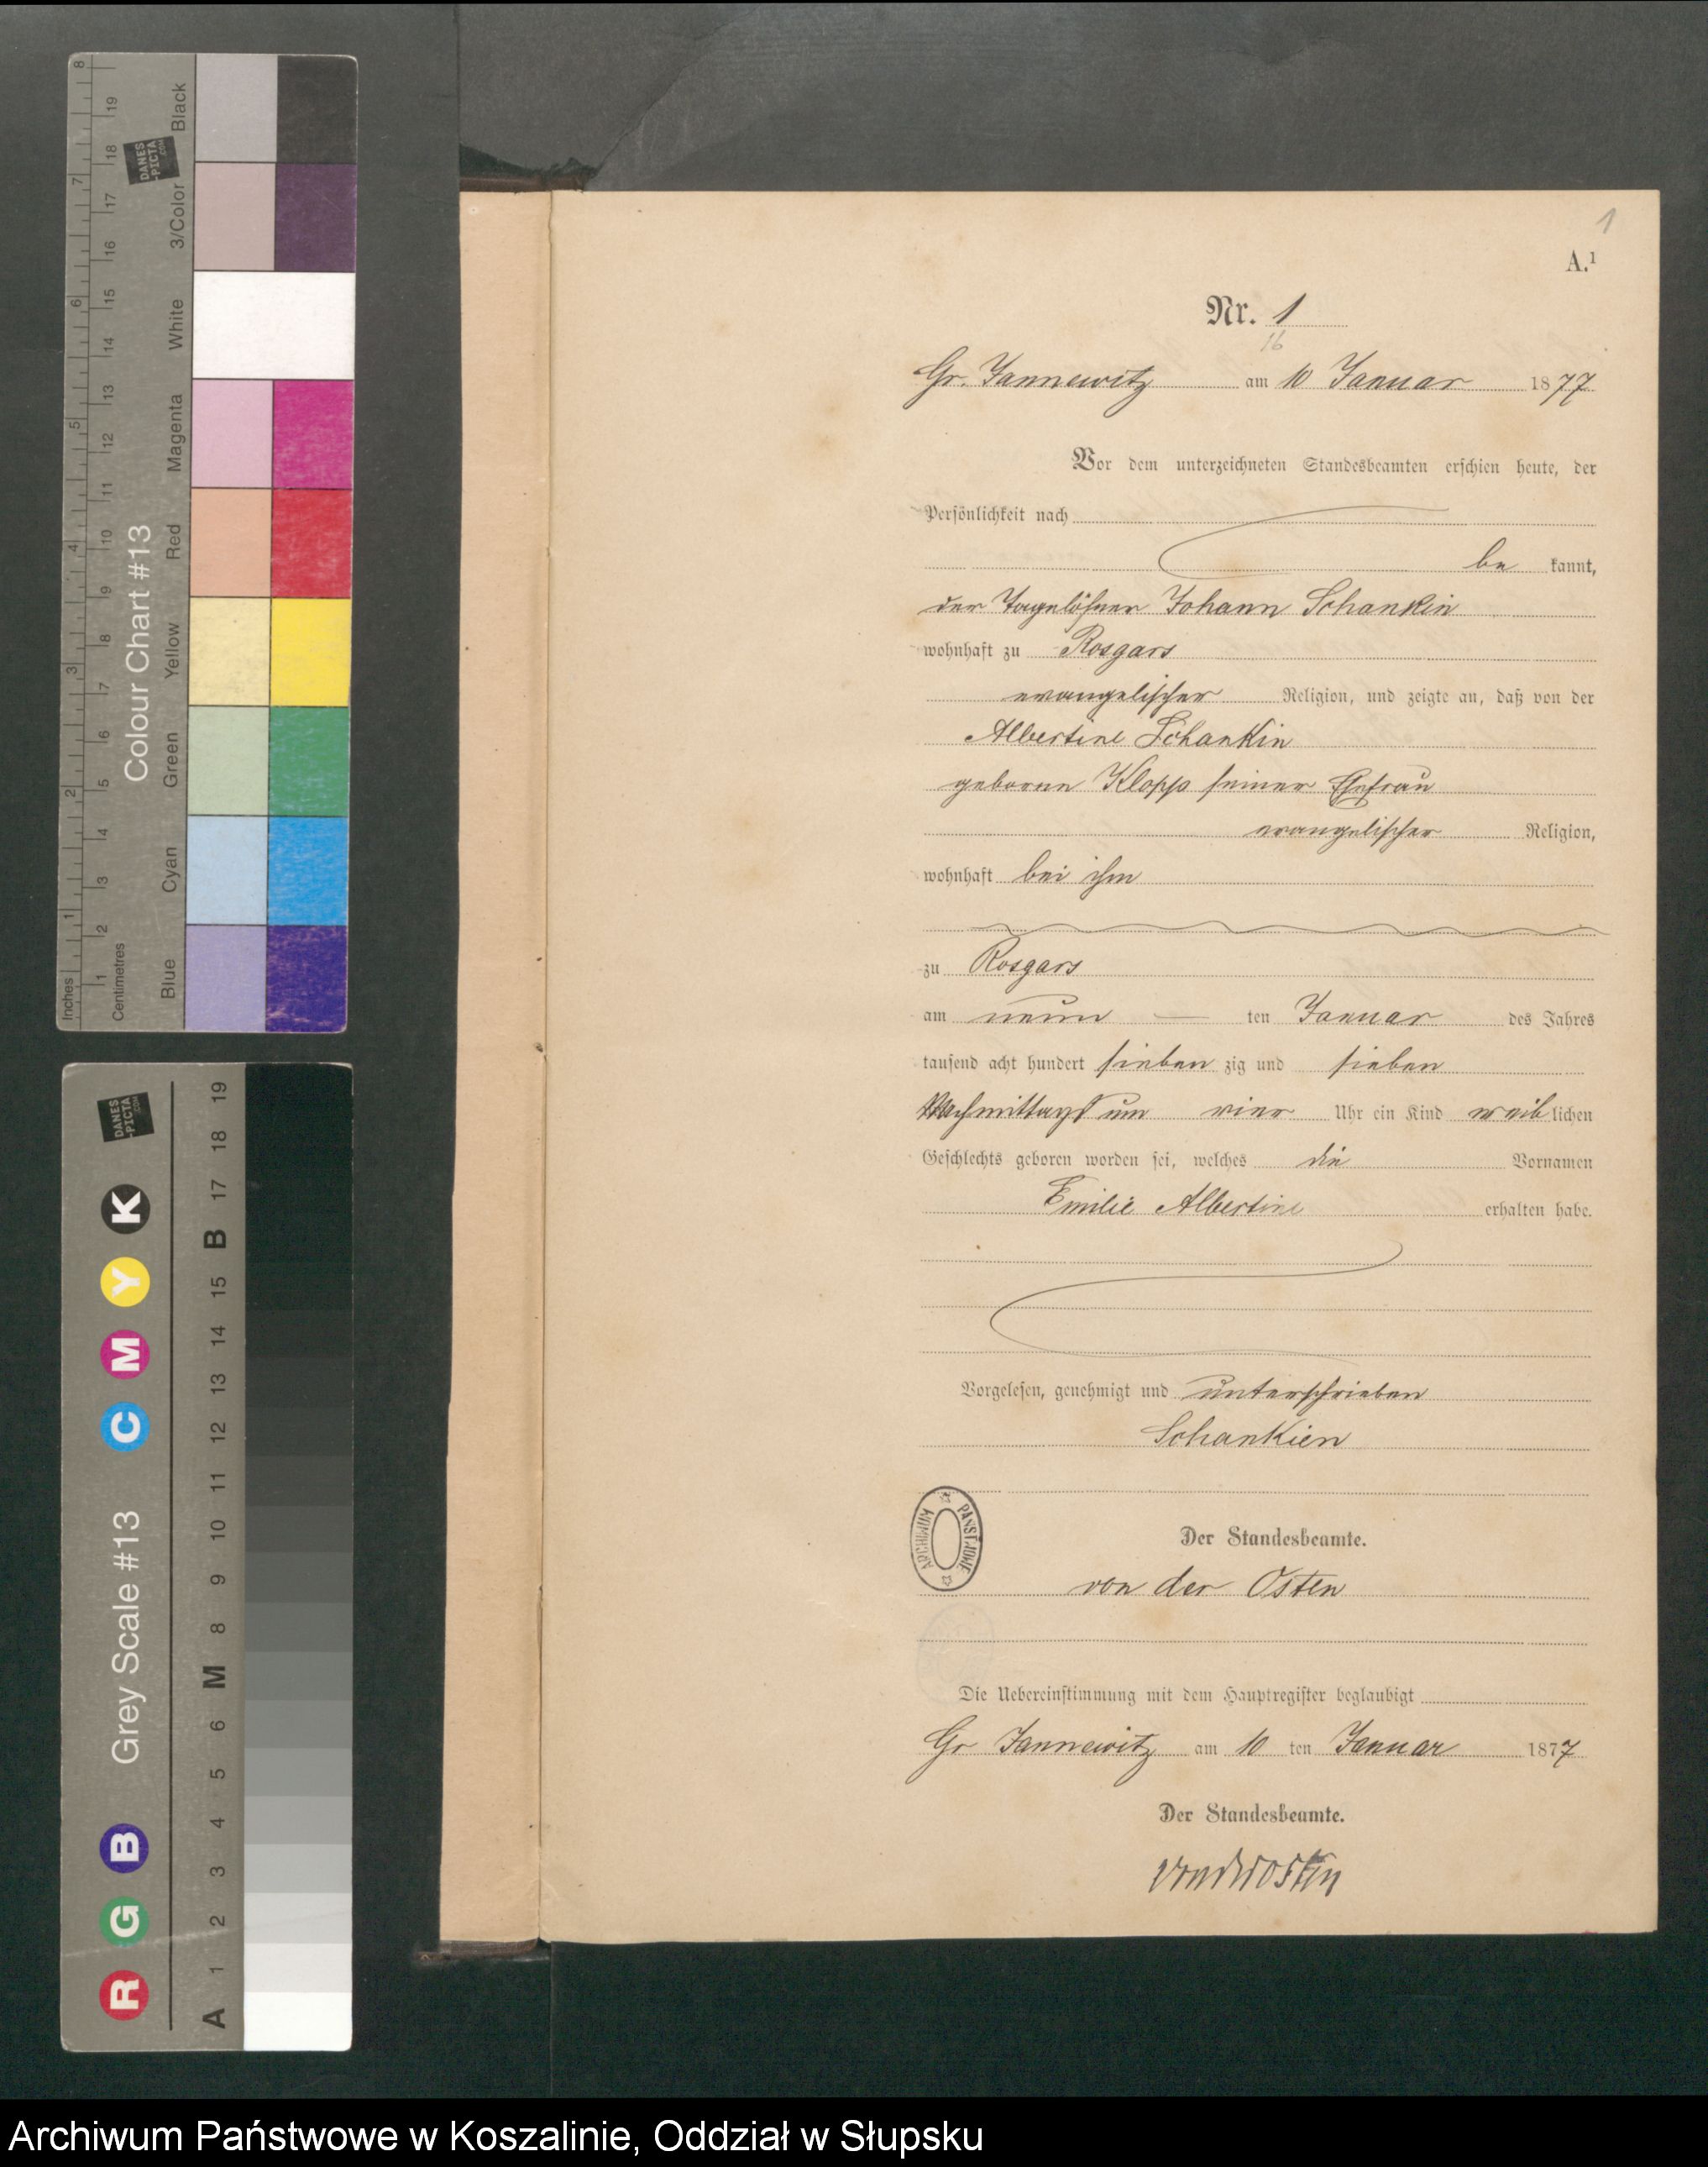 1
A.¹
Nr. 1
16
Gr. Jannewitz am 10 Januar 1877
Vor dem unterzeichneten Standesbeamten erschien heute, der
Persönlichkeit nach
be kannt,
der Tagelöhner Johann Schankin
wohnhaft zu Rosgars
evangelischer Religion, und zeigte an, daß von der
Albertine Schankin
geborne Klopp seiner Ehefrau
evangelischer Religion,
wohnhaft bei ihm
zu Rosgars
am neun — ten Januar des Jahres
tausend acht hundert sieben zig und sieben
Nachmittags um vier Uhr ein Kind weiblichen
Geschlechts geboren worden sei, welches die Vornamen
Emilie Albertine erhalten habe.
Vorgelesen, genehmigt und unterschrieben
Schankien
ARCHIWUM PAŃSTWOWE
Der Standesbeamte.
von der Osten
Die Uebereinstimmung mit dem Hauptregister beglaubigt
Gr Jannewitz am 10 ten Januar 1877
Der Standesbeamte.
von der Osten
Colour Chart #13
Blue Cyan Green Yellow Red Magenta White 3/Color Black
Inches 1 2 3 4 5 6 7 8
Centimetres 1 2 3 4 5 6 7 8 9 10 11 12 13 14 15 16 17 18 19
DANES-PICTA.COM
Grey Scale #13
R G B C M Y K
A 1 2 3 4 5 6 M 8 9 10 11 12 13 14 15 B 17 18 19
DANES-PICTA.COM
Archiwum Państwowe w Koszalinie, Oddział w Słupsku